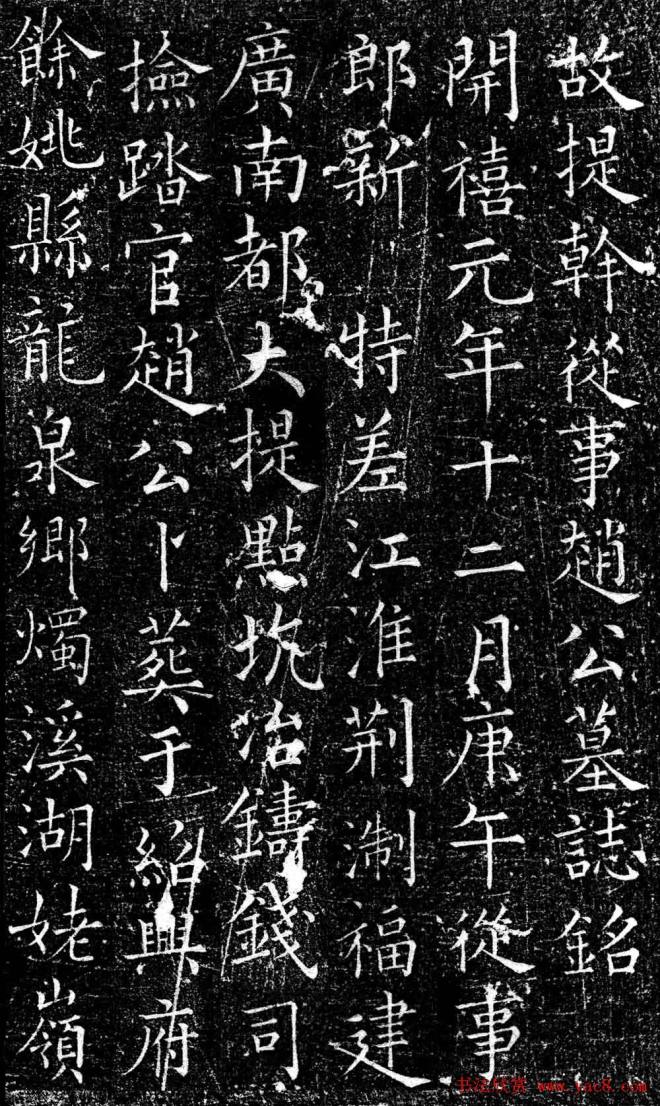 故提幹從事趙公墓誌銘
開禧元年十二月庚午從事
郎新 特差江淮荆淛福建
廣南都大提點坑冶鑄錢司
撿踏官趙公卜葬于紹興府
餘姚縣龍泉鄉燭溪湖姥嶺
书法欣赏 www.yac8.com